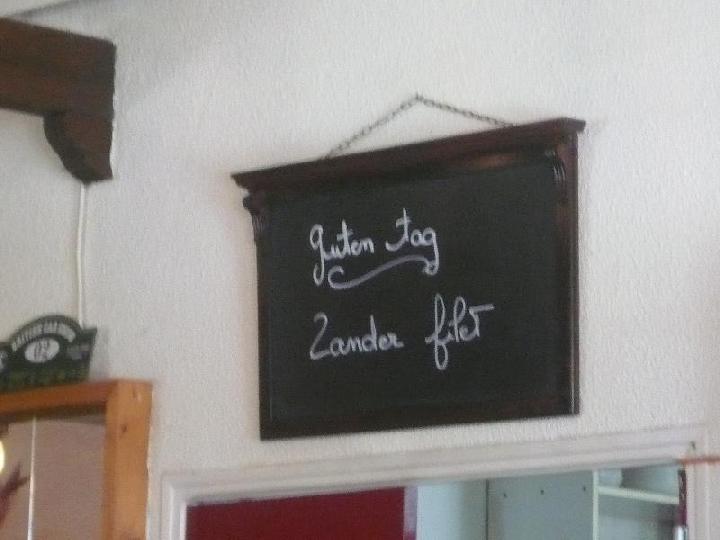 guten tag
Zander filet
02